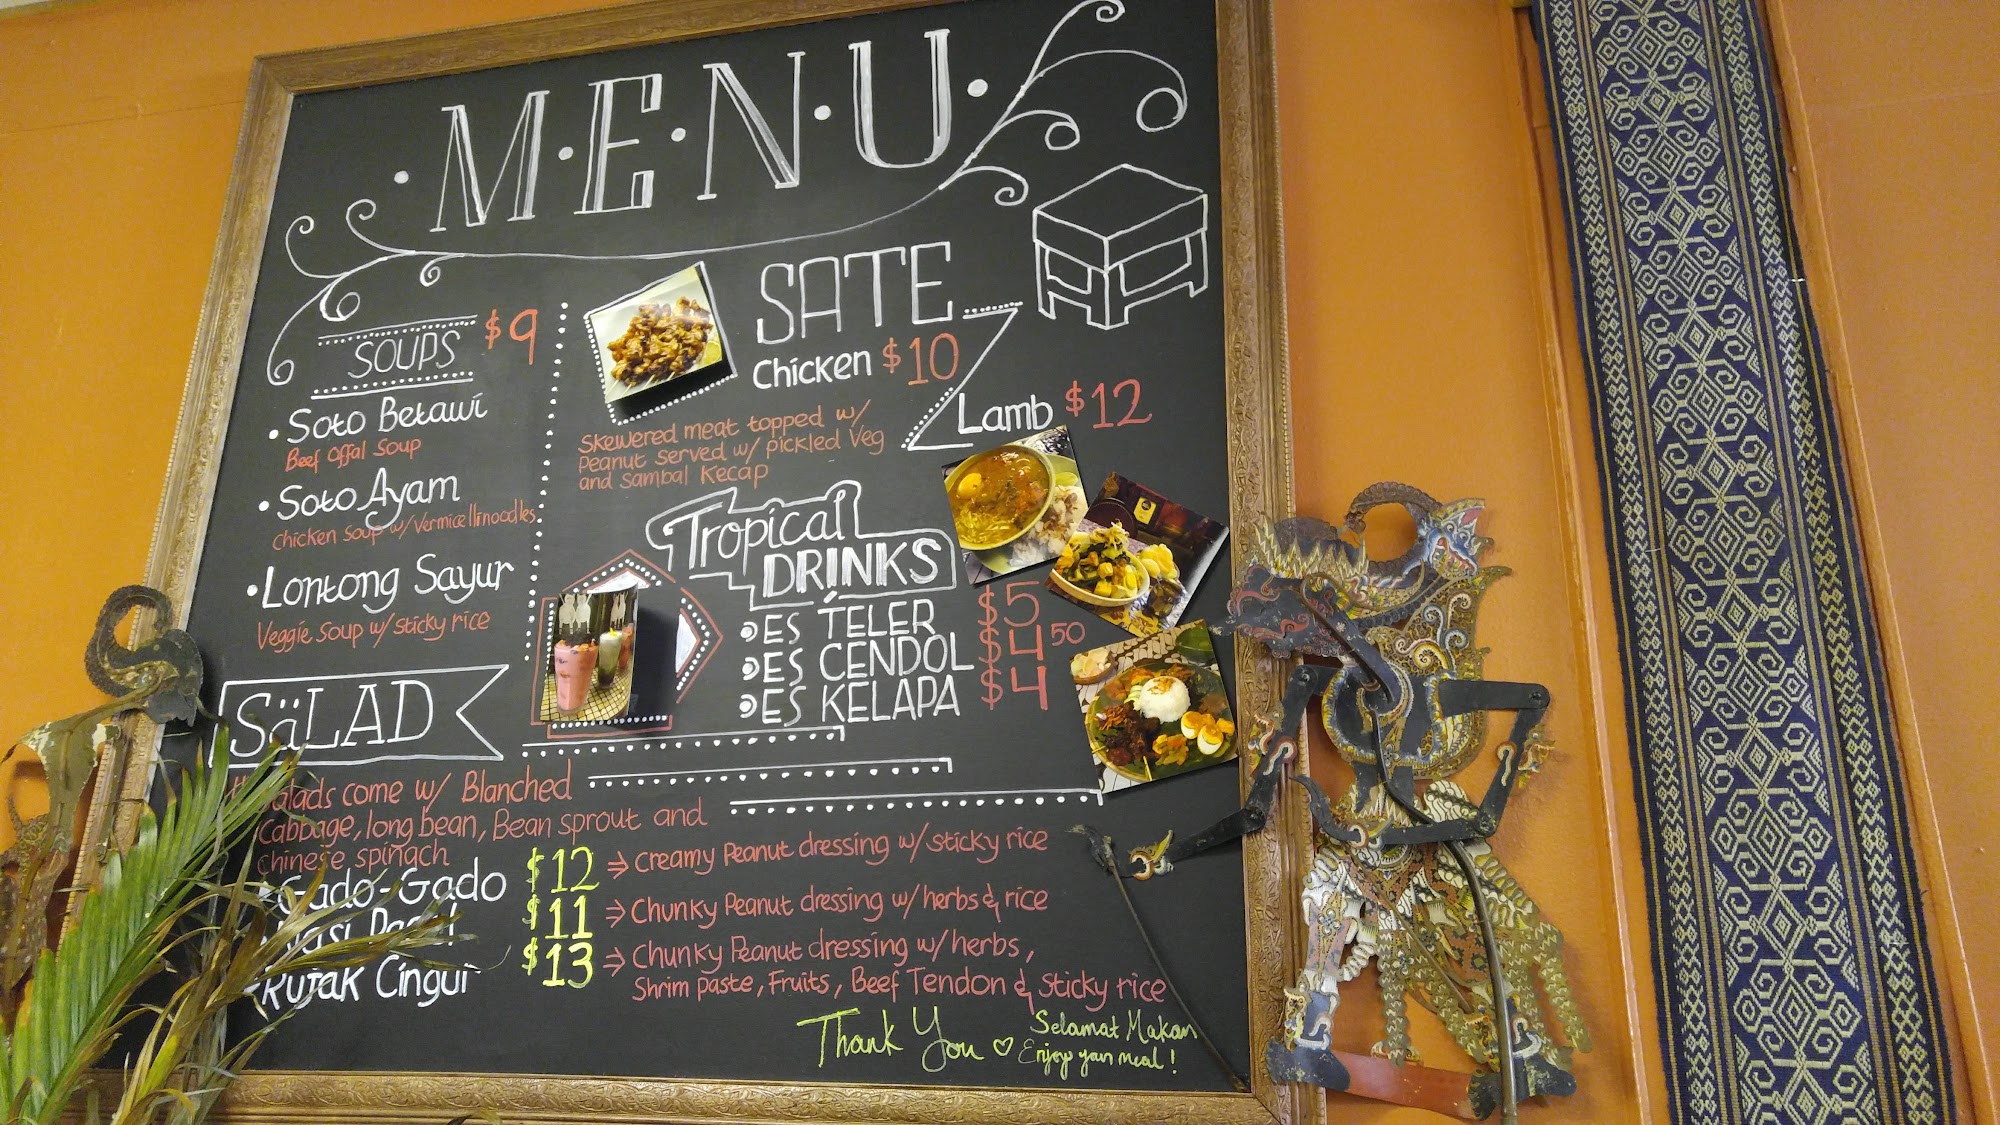 M·E·N·U
SOUPS $9
• Soto Betawi
Beef Offal Soup
• Soto Ayam
Chicken Soup w/ Vermicelli noodles
• Lontong Sayur
Veggie Soup w/ sticky rice
SATE
Chicken $10
Lamb $12
Skewered meat topped w/
Peanut served w/ pickled Veg
and sambal Kecap
Tropical
DRINKS
ES TELER $5
ES CENDOL $4 50
ES KELAPA $4
SäLAD
Salads come w/ Blanched
Cabbage, long bean, Bean sprout and
chinese spinach
Gado-Gado $12 ⇒ Creamy Peanut dressing w/ sticky rice
$11 ⇒ Chunky Peanut dressing w/ herbs & rice
Rujak Cingur $13 ⇒ Chunky Peanut dressing w/ herbs,
Shrim paste, Fruits, Beef Tendon & sticky rice
Thank You ♡ Selamat Makan
Enjoy your meal!